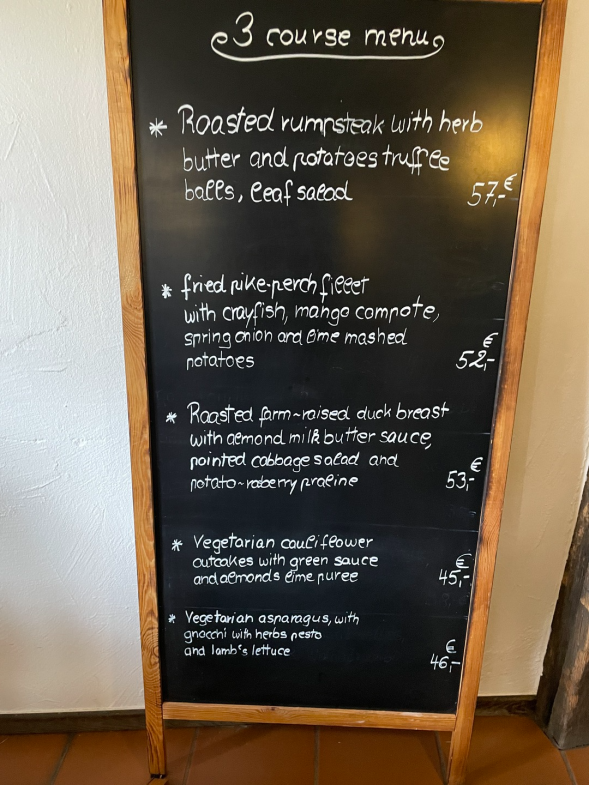 3 course menu
* Roasted rumpsteak with herb
butter and potatoes truffle
balls, leaf salad
57,-€
* fried pike-perch fillet
with crayfish, mango compote,
spring onion and lime mashed
potatoes
52,-€
* Roasted farm-raised duck breast
with almond milk butter sauce,
pointed cabbage salad and
potato-raberry praline
53,-€
* Vegetarian cauliflower
outcakes with green sauce
and almonds lime puree
45,-€
* Vegetarian asparagus, with
gnocchi with herbs pesto
and lamb's lettuce
46,-€